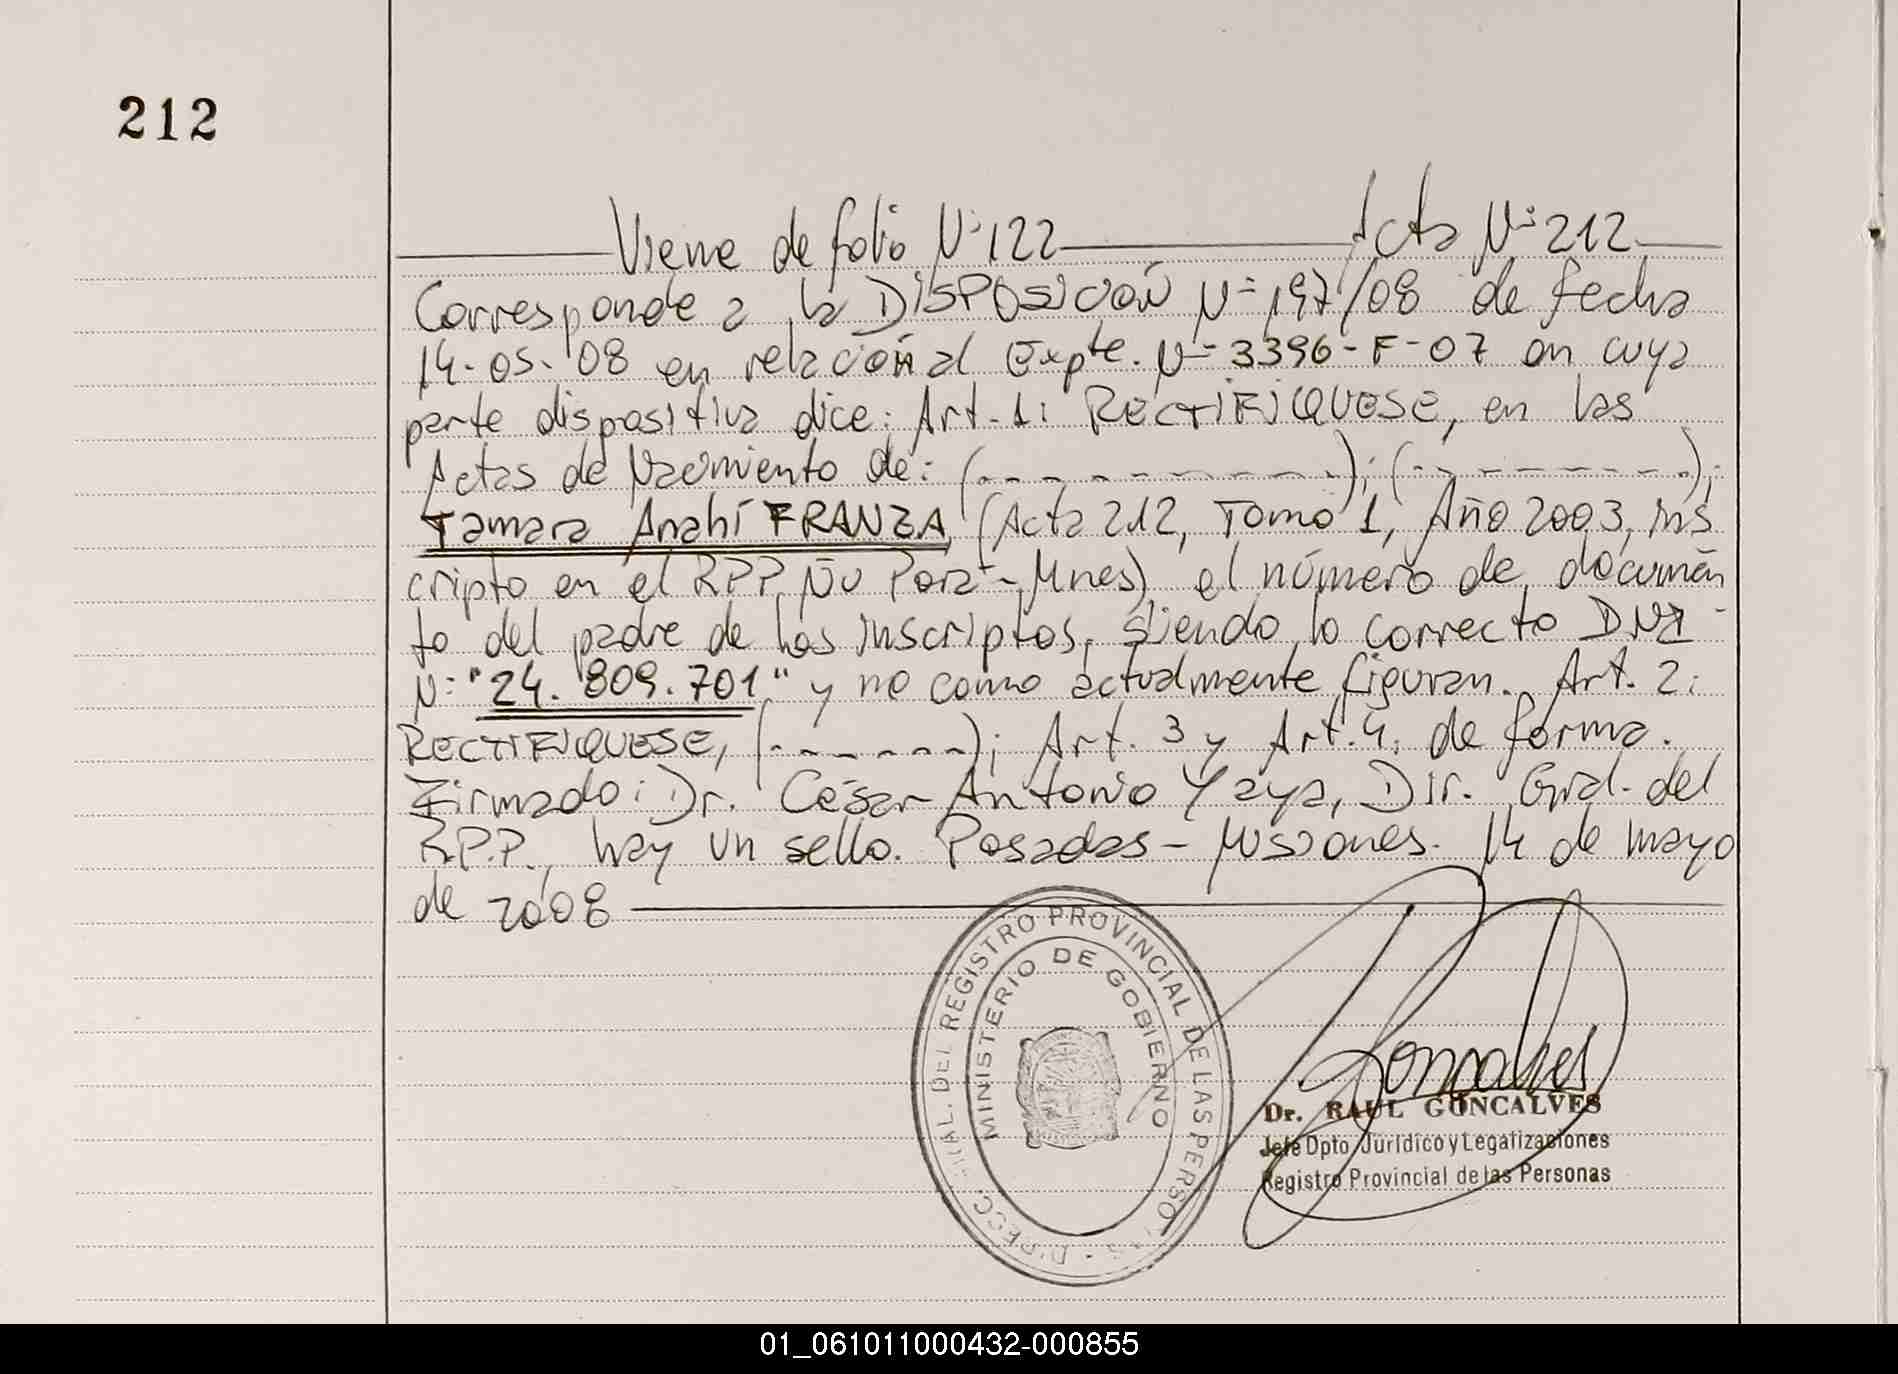 212
Viene de folio Nº 122 Acta Nº 212
Corresponde a la DISPOSICIÓN Nº 197/08 de fecha
14-05-08 en relación al Expte. Nº 3396-F-07 en cuya
parte dispositiva dice: Art. 1: RECTIFIQUESE, en las
Actas de Nacimiento de: (- - - - - - - - - -); (- - - - - - - -);
Tamara Anahí FRANZA (Acta 212, Tomo 1, Año 2003, ins
cripto en el RPP Ñu Porá - Mnes) el número de documen
to del padre de los inscriptos, siendo lo correcto DNI
Nº "24.809.701" y no como actualmente figuran. Art. 2:
RECTIFIQUESE, (- - - - - - -); Art. 3 y Art. 4: de forma.
Firmado: Dr. César Antonio Yaya, Dir. Gral. del
R.P.P., hay un sello. Posadas - Misiones. 14 de mayo
de 2008
REGISTRO PROVINCIAL DE LAS PERSONAS
MINISTERIO DE GOBIERNO
Goncalves
Dr. RAUL GONCALVES
Jefe Dpto. Jurídico y Legalizaciones
Registro Provincial de las Personas
01_061011000432-000855